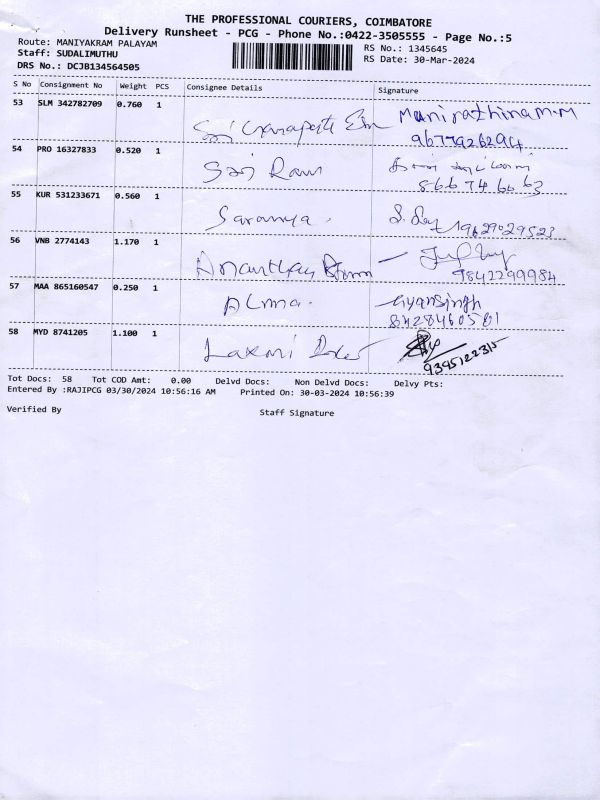 THE PROFESSIONAL COURIERS, COIMBATORE
Delivery Runsheet - PCG - Phone No.:0422-3505555 - Page No.:5
Route: MANIYAKRAM PALAYAM
Staff: SUDALIMUTHU
DRS No.: DCJB134564505
RS No.: 1345645
RS Date: 30-Mar-2024
S No Consignment No Weight PCS Consignee Details Signature
53 SLM 342782709 0.760 1 Sri Ganapathi Munirathinam.M
9677926294
54 PRO 16327833 0.520 1 Sri Ram
8667466663
55 KUR 531233671 0.560 1 Saranya. 9629029523
56 VNB 2774143 1.170 1
9842299984
57 MAA 865160547 0.250 1 Gyansingh
8428460581
58 MYD 8741205 1.100 1 Laxmi
9395122315
Tot Docs: 58 Tot COD Amt: 0.00 Delvd Docs: Non Delvd Docs: Delvy Pts:
Entered By :RAJIPCG 03/30/2024 10:56:16 AM Printed On: 30-03-2024 10:56:39
Verified By Staff Signature